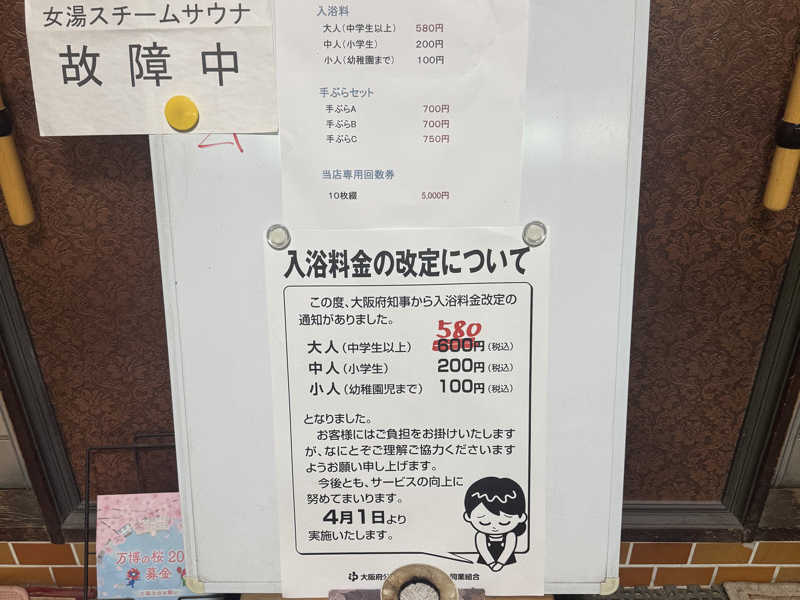 女湯スチームサウナ
故障中
入浴料
大人(中学生以上) 580円
中人(小学生) 200円
小人(幼稚園まで) 100円
手ぶらセット
手ぶらA 700円
手ぶらB 700円
手ぶらC 750円
当店専用回数券
10枚綴 5,000円
入浴料金の改定について
この度、大阪府知事から入浴料金改定の
通知がありました。
580
大人(中学生以上) 600円(税込)
中人(小学生) 200円(税込)
小人(幼稚園児まで) 100円(税込)
となりました。
お客様にはご負担をお掛けいたします
が、なにとぞご理解ご協力くださいます
ようお願い申し上げます。
今後とも、サービスの向上に
努めてまいります。
4月1日より
実施いたします。
大阪府公
同業組合
万博の桜 20
募金